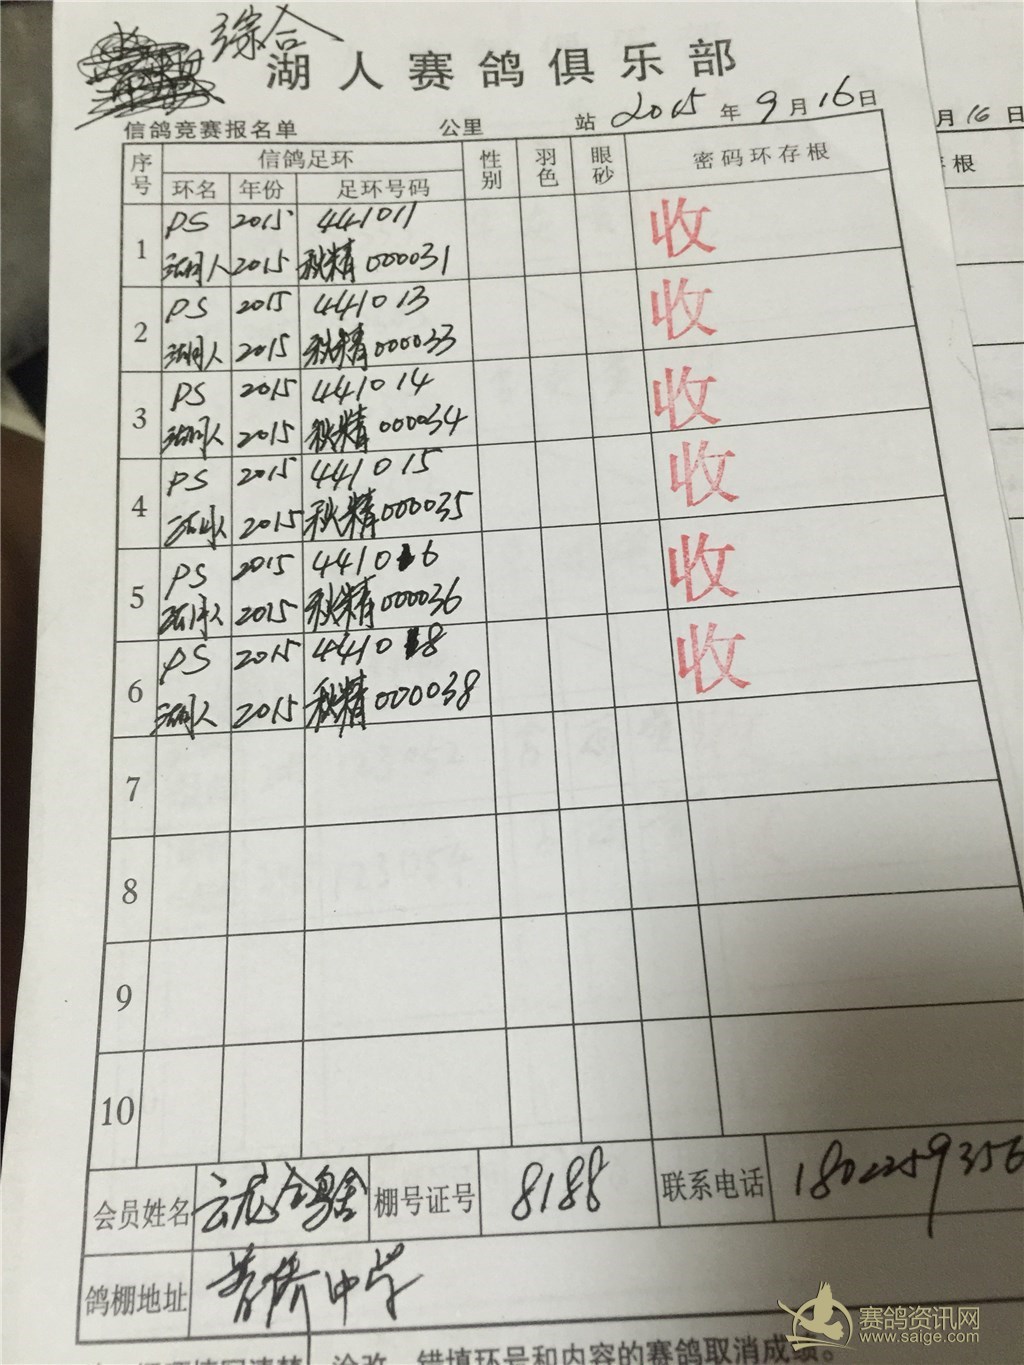 综合
湖人赛鸽俱乐部
信鸽竞赛报名单 公里 站 2015 年 9 月 16 日
月 16 日
序号 信鸽足环 性别 羽色 眼砂 密码环存根
根
环名 年份 足环号码
1 PS 2015 441011 收
湖人 2015 秋精 000031
2 PS 2015 441013 收
湖人 2015 秋精 000033
3 PS 2015 441014 收
湖人 2015 秋精 000034
4 PS 2015 441015 收
湖人 2015 秋精 000035
5 PS 2015 441016 收
湖人 2015 秋精 000036
6 PS 2015 441018 收
湖人 2015 秋精 000038
7
8
9
10
会员姓名 云龙 鸽舍 棚号证号 8188 联系电话 1802259356
鸽棚地址 普侨中学
涂改、错填环号和内容的赛鸽取消成绩。
赛鸽资讯网
www.saige.com